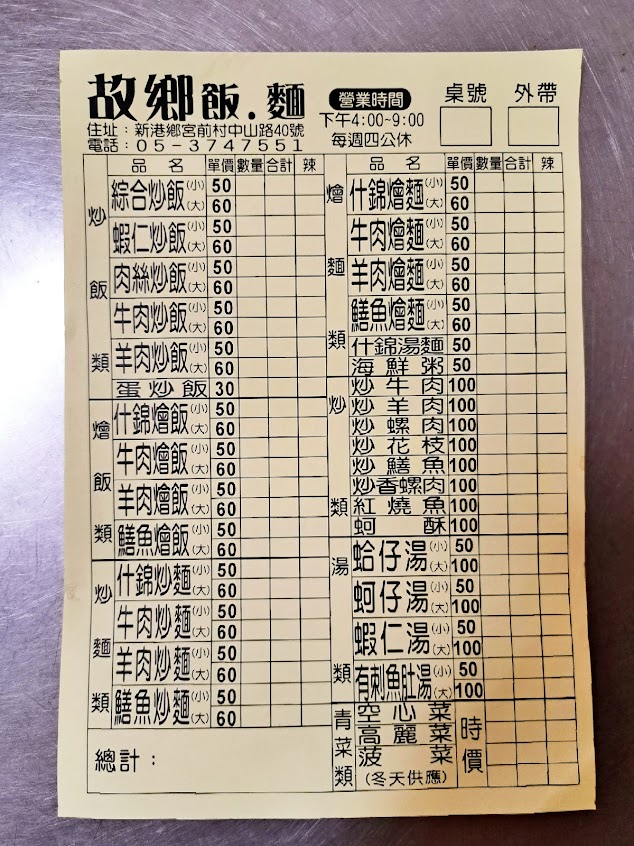 故鄉飯.麵
營業時間
下午4:00~9:00
每週四公休
桌號 外帶
住址：新港鄉宮前村中山路40號
電話：05-3747551
品名 單價 數量 合計 辣
炒飯類
綜合炒飯 (小) 50
(大) 60
蝦仁炒飯 (小) 50
(大) 60
肉絲炒飯 (小) 50
(大) 60
牛肉炒飯 (小) 50
(大) 60
羊肉炒飯 (小) 50
(大) 60
蛋炒飯 30
燴飯類
什錦燴飯 (小) 50
(大) 60
牛肉燴飯 (小) 50
(大) 60
羊肉燴飯 (小) 50
(大) 60
鱔魚燴飯 (小) 50
(大) 60
炒麵類
什錦炒麵 (小) 50
(大) 60
牛肉炒麵 (小) 50
(大) 60
羊肉炒麵 (小) 50
(大) 60
鱔魚炒麵 (小) 50
(大) 60
總計：
品名 單價 數量 合計 辣
燴麵類
什錦燴麵 (小) 50
(大) 60
牛肉燴麵 (小) 50
(大) 60
羊肉燴麵 (小) 50
(大) 60
鱔魚燴麵 (小) 50
(大) 60
什錦湯麵 50
海鮮粥 50
炒類
炒牛肉 100
炒羊肉 100
炒螺肉 100
炒花枝 100
炒鱔魚 100
炒香螺肉 100
紅燒魚 100
蚵酥 100
湯類
蛤仔湯 (小) 50
(大) 100
蚵仔湯 (小) 50
(大) 100
蝦仁湯 (小) 50
(大) 100
有刺魚肚湯 (小) 50
(大) 100
青菜類
空心菜
高麗菜
菠菜
(冬天供應)
時價